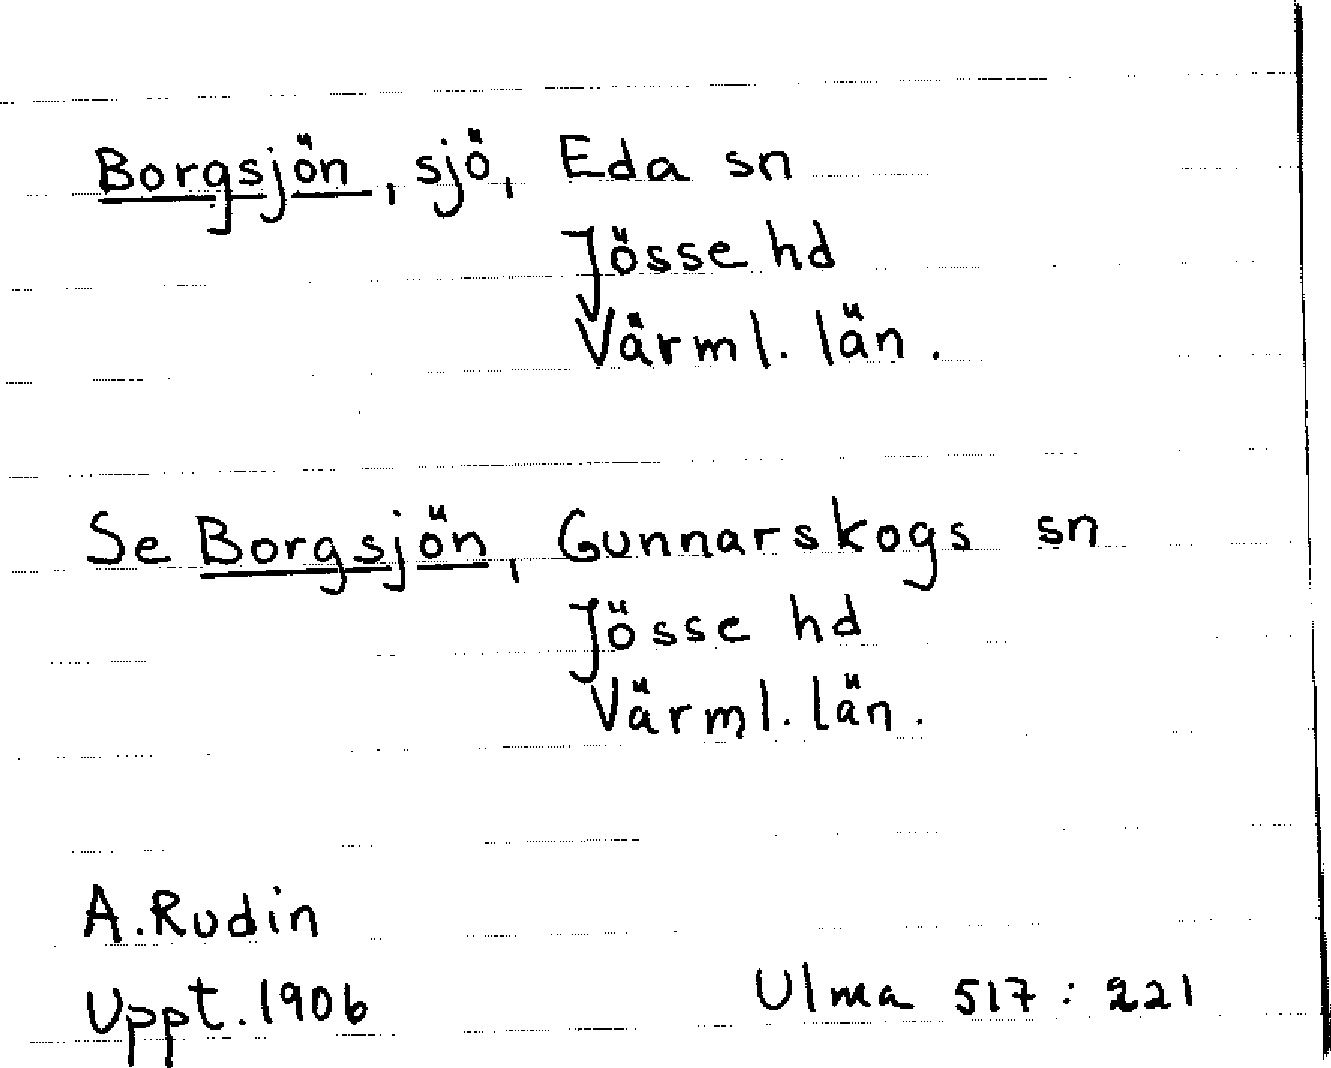 Borgsjön, sjö, Eda sn
Jösse hd
Värml. län.
Se Borgsjön, Gunnarskogs sn
Jösse hd
Värml. län.
A. Rudin
Uppt. 1906
Ulma 517 : 221